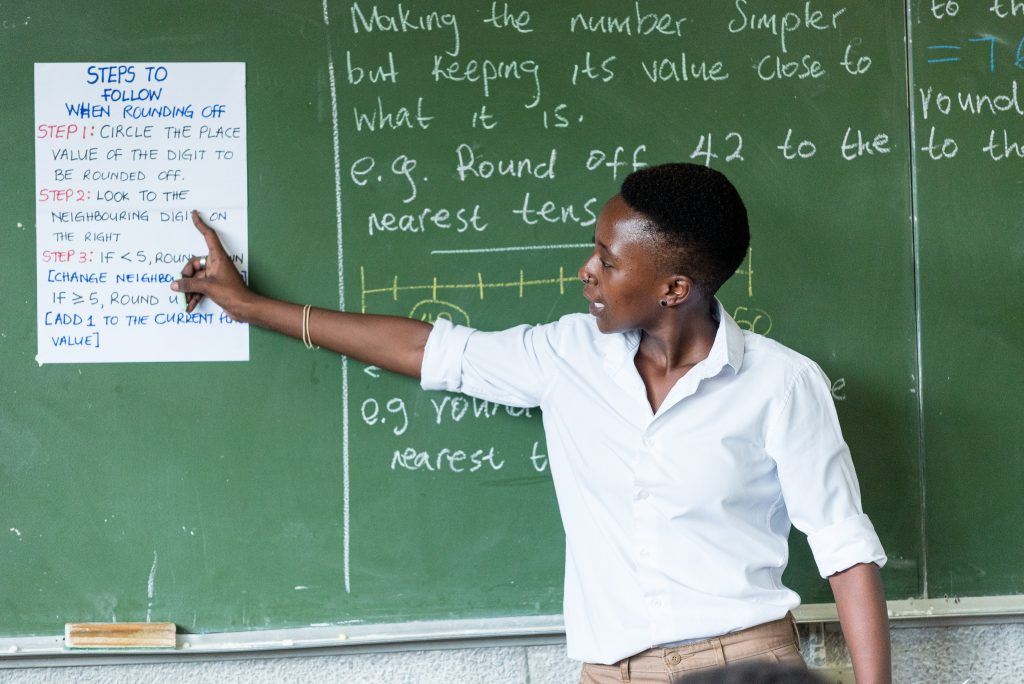 STEPS TO
FOLLOW
WHEN ROUNDING OFF
STEP 1: CIRCLE THE PLACE
VALUE OF THE DIGIT TO
BE ROUNDED OFF.
STEP 2: LOOK TO THE
NEIGHBOURING DIGIT ON
THE RIGHT
STEP 3: IF < 5,
[CHANGE
IF ≥ 5, ROUND
[ADD 1 TO THE CURRENT
VALUE]
Making the number Simpler
but keeping its value close to
what it is.
e.g. Round off 42 to the
nearest tens
<
e.g
nearest
to
= 7
round
to